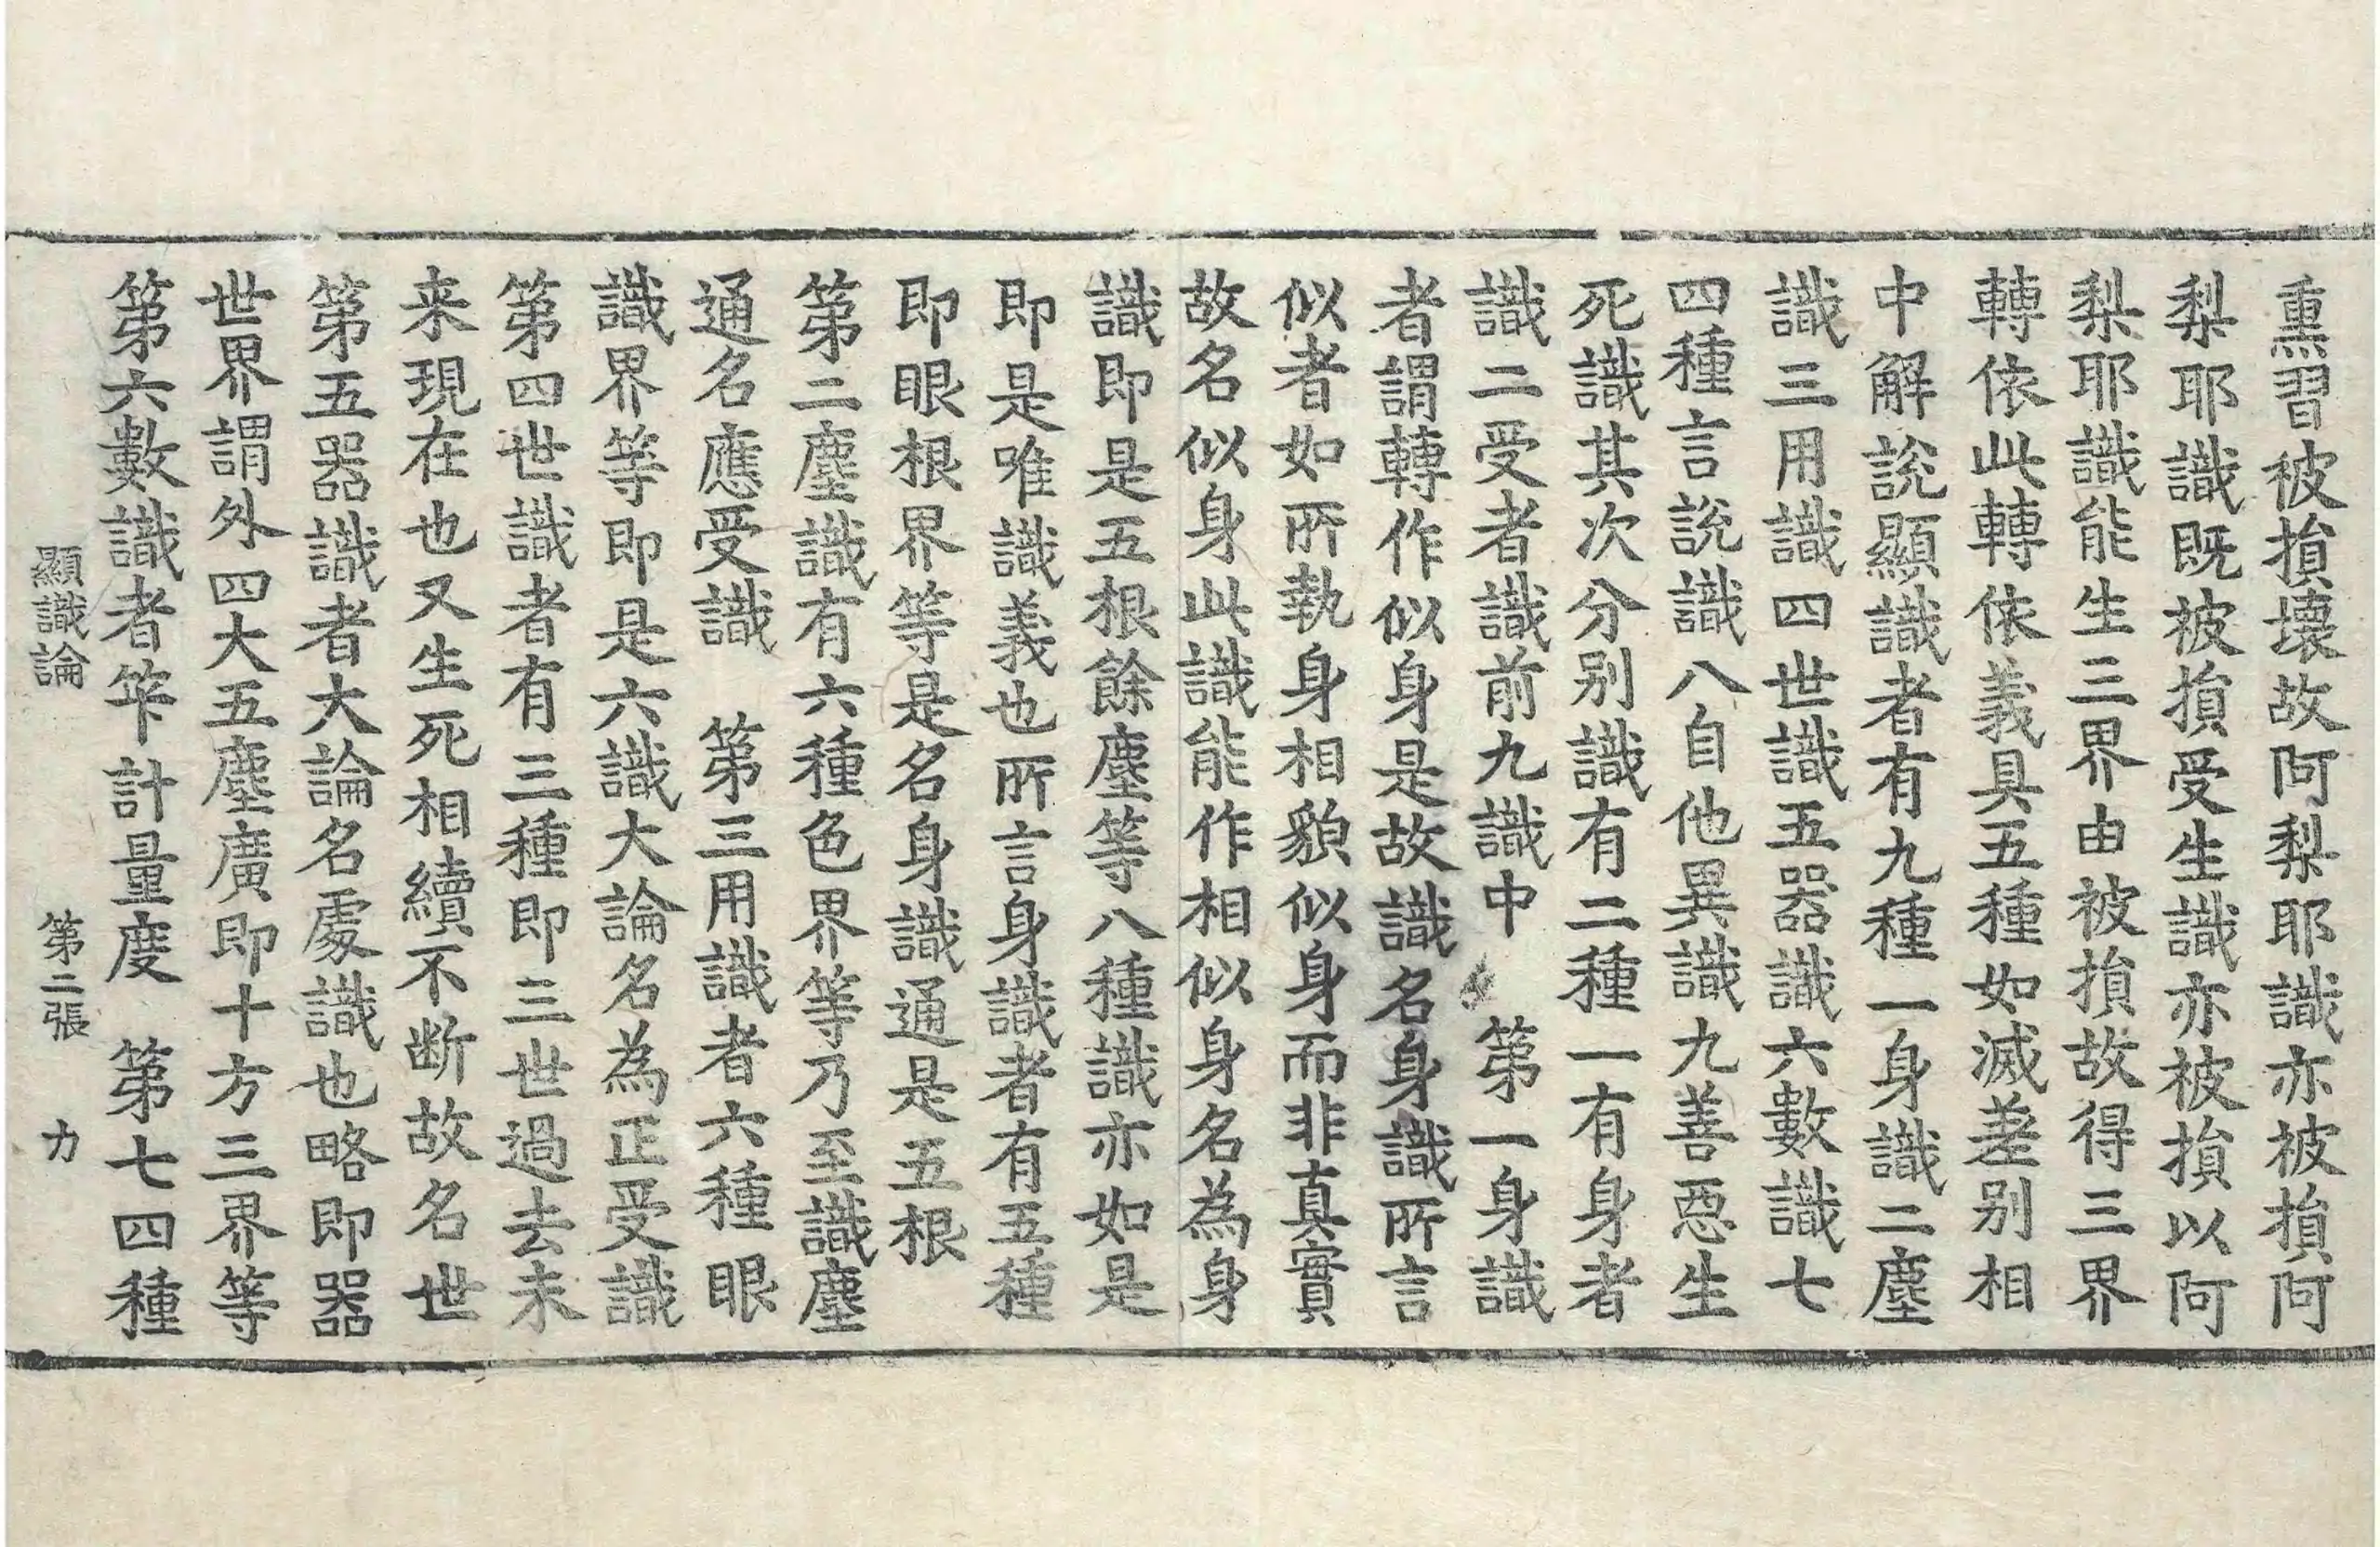 熏習被損壞故阿梨耶識亦被損阿
梨耶識既被損受生識亦被損以阿
梨耶識能生三界由被損故得三界
轉依此轉依義具五種如滅差别相
中解說顯識者有九種一身識二塵
識三用識四世識五器識六數識七
四種言說識八自他異識九善惡生
死識其次分别識有二種一有身者
識二受者識前九識中　第一身識
者謂轉作似身是故識名身識所言
似者如所執身相貌似身而非真實
故名似身此識能作相似身名為身
識即是五根餘塵等八種識亦如是
即是唯識義也所言身識者有五種
即眼根界等是名身識通是五根
第二塵識有六種色界等乃至識塵
通名應受識　第三用識者六種眼
識界等即是六識大論名為正受識
第四世識者有三種即三世過去未
来現在也又生死相續不断故名世
第五器識者大論名處識也略即器
世界謂外四大五塵廣即十方三界等
第六數識者笇計量度　第七四種
顯識論　第二張　力